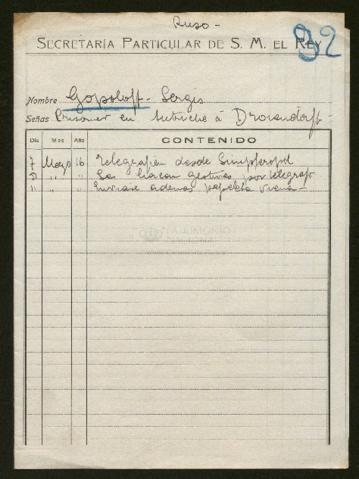 Ruso -
SECRETARÍA PARTICULAR DE S. M. EL REY
92
Nombre Gopsloff - Serges
Señas Prisoner en Autriche à Drosendorf -
Día Mes Año CONTENIDO
7 Mayo 16 Telegrafian desde Simpferopol
" " " Se hacen gestiones por telegrafo
" " " Enviase ademas papeleta Viena -
PATRIMONIO
NACIONAL